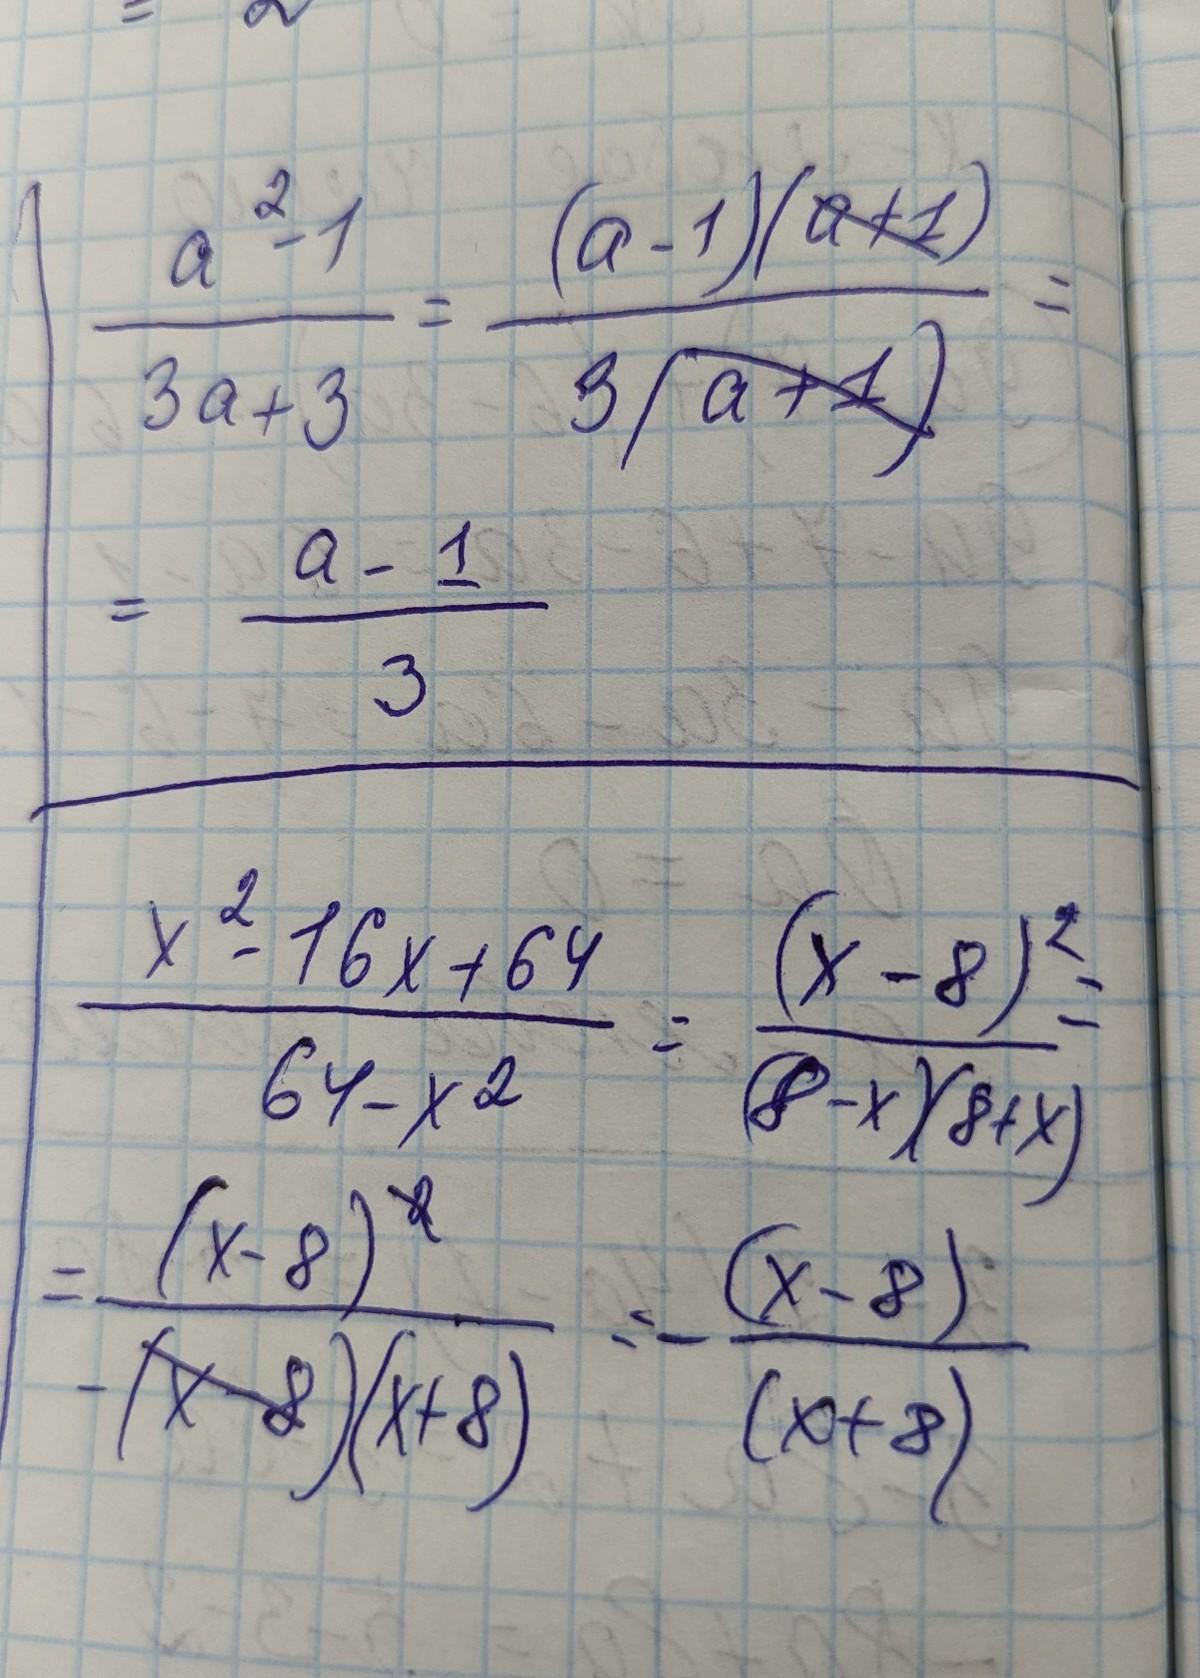 = 2
a² - 1 / 3a + 3 = (a - 1)(a + 1) / 3(a + 1) =
= a - 1 / 3
x² - 16x + 64 / 64 - x² = (x - 8)² / (8 - x)(8 + x) =
= (x - 8)² / -(x - 8)(x + 8) = - (x - 8) / (x + 8)